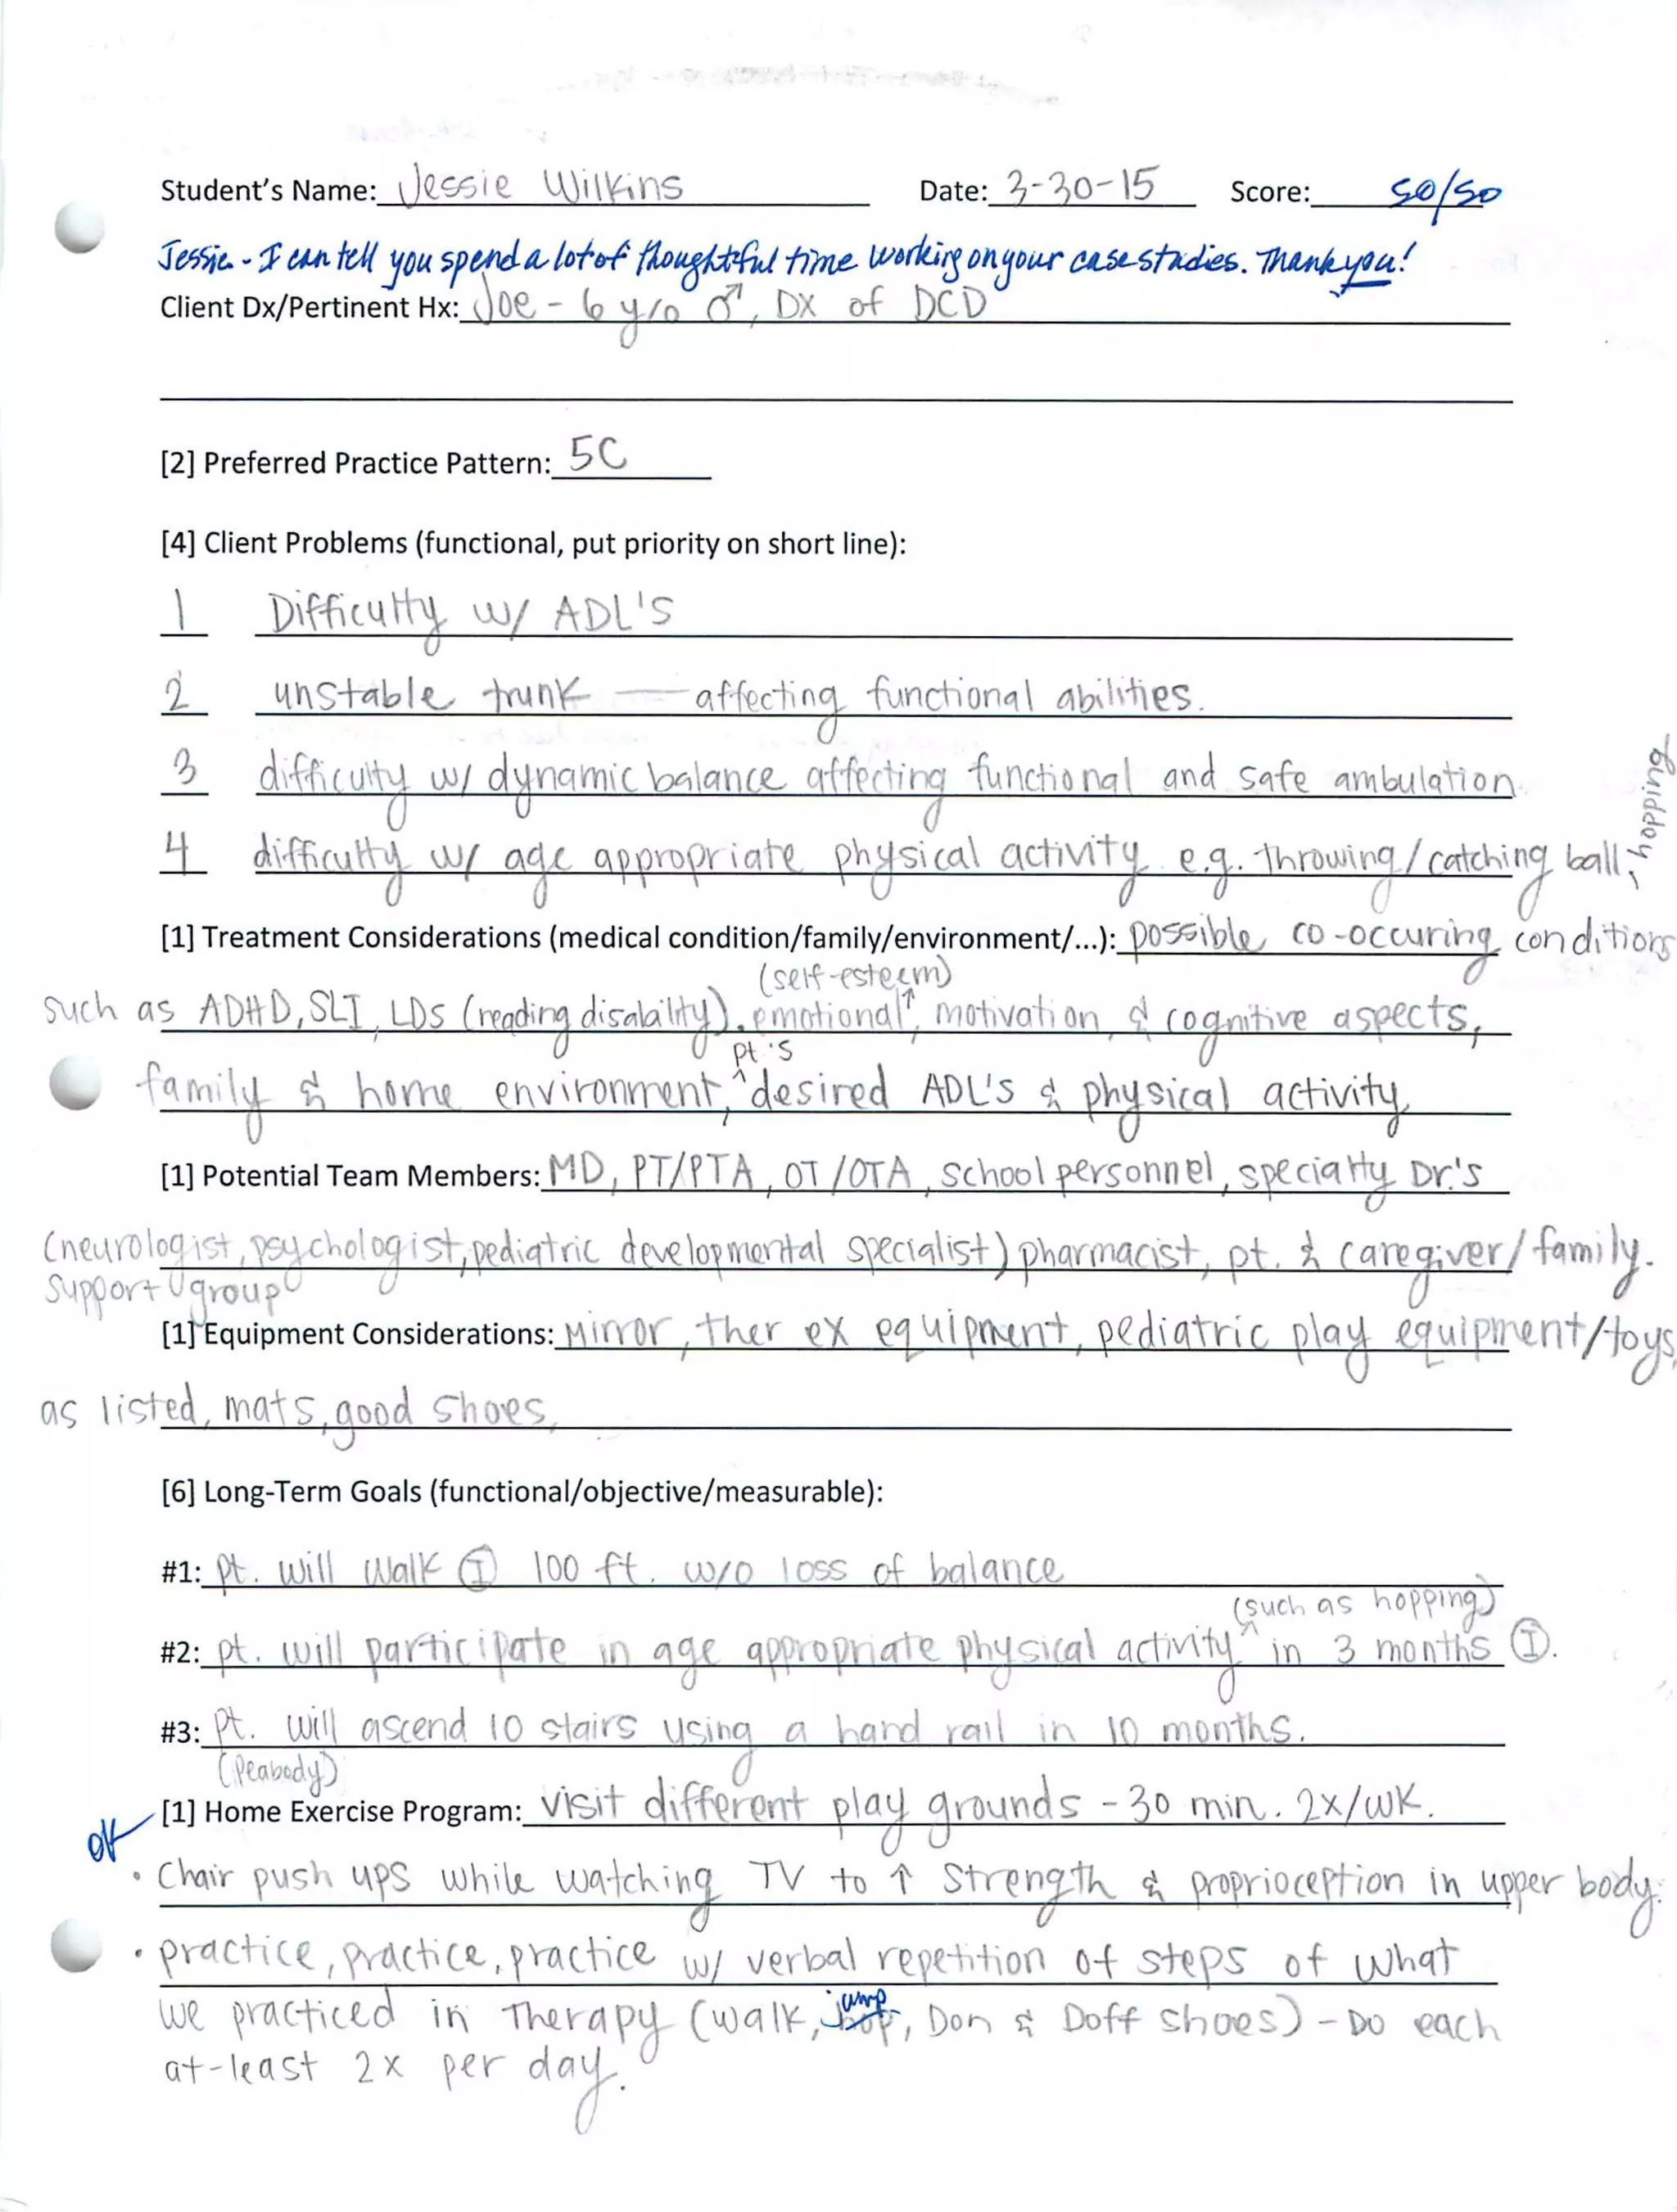 Student's Name: Jessie Wilkins Date: 3-30-15 Score: 50/50
Jessie - I can tell you spend a lot of thoughtful time working on your case studies. Thank you!
Client Dx/Pertinent Hx: Joe - 6 y/o ♂, DX of DCD
[2] Preferred Practice Pattern: 5C
[4] Client Problems (functional, put priority on short line):
1 Difficulty w/ ADL'S
2 unstable trunk — affecting functional abilities.
3 difficulty w/ dynamic balance affecting functional and safe ambulation
4 difficulty w/ age appropriate physical activity e.g. throwing/catching ball, hopping
[1] Treatment Considerations (medical condition/family/environment/...): possible co-occuring conditions
(self-esteem)
such as ADHD, SLI, LDs (reading disability), emotional↑, motivation, & cognitive aspects,
pt.'s
family & home environment, ^desired ADL'S & physical activity
[1] Potential Team Members: MD, PT/PTA, OT/OTA, school personnel, specialty Dr.'s
(neurologist, psychologist, pediatric developmental specialist) pharmacist, pt. & caregiver/family.
support group
[1] Equipment Considerations: Mirror, ther ex equipment, pediatric play equipment/toys,
as listed, mats, good shoes,
[6] Long-Term Goals (functional/objective/measurable):
#1: pt. will walk Ⓘ 100 ft. w/o loss of balance
(such as hopping)
#2: pt. will participate in age appropriate physical activity^ in 3 months Ⓘ.
#3: Pt. will ascend 10 stairs using a hand rail in 10 months.
(Peabody)
[1] Home Exercise Program: visit different play grounds - 30 min. 2x/wk.
ok
• Chair push ups while watching TV to ↑ strength & proprioception in upper body.
• practice, practice, practice w/ verbal repetition of steps of what
we practiced in Therapy (walk, jump, Don & Doff shoes) - Do each
at-least 2x per day.